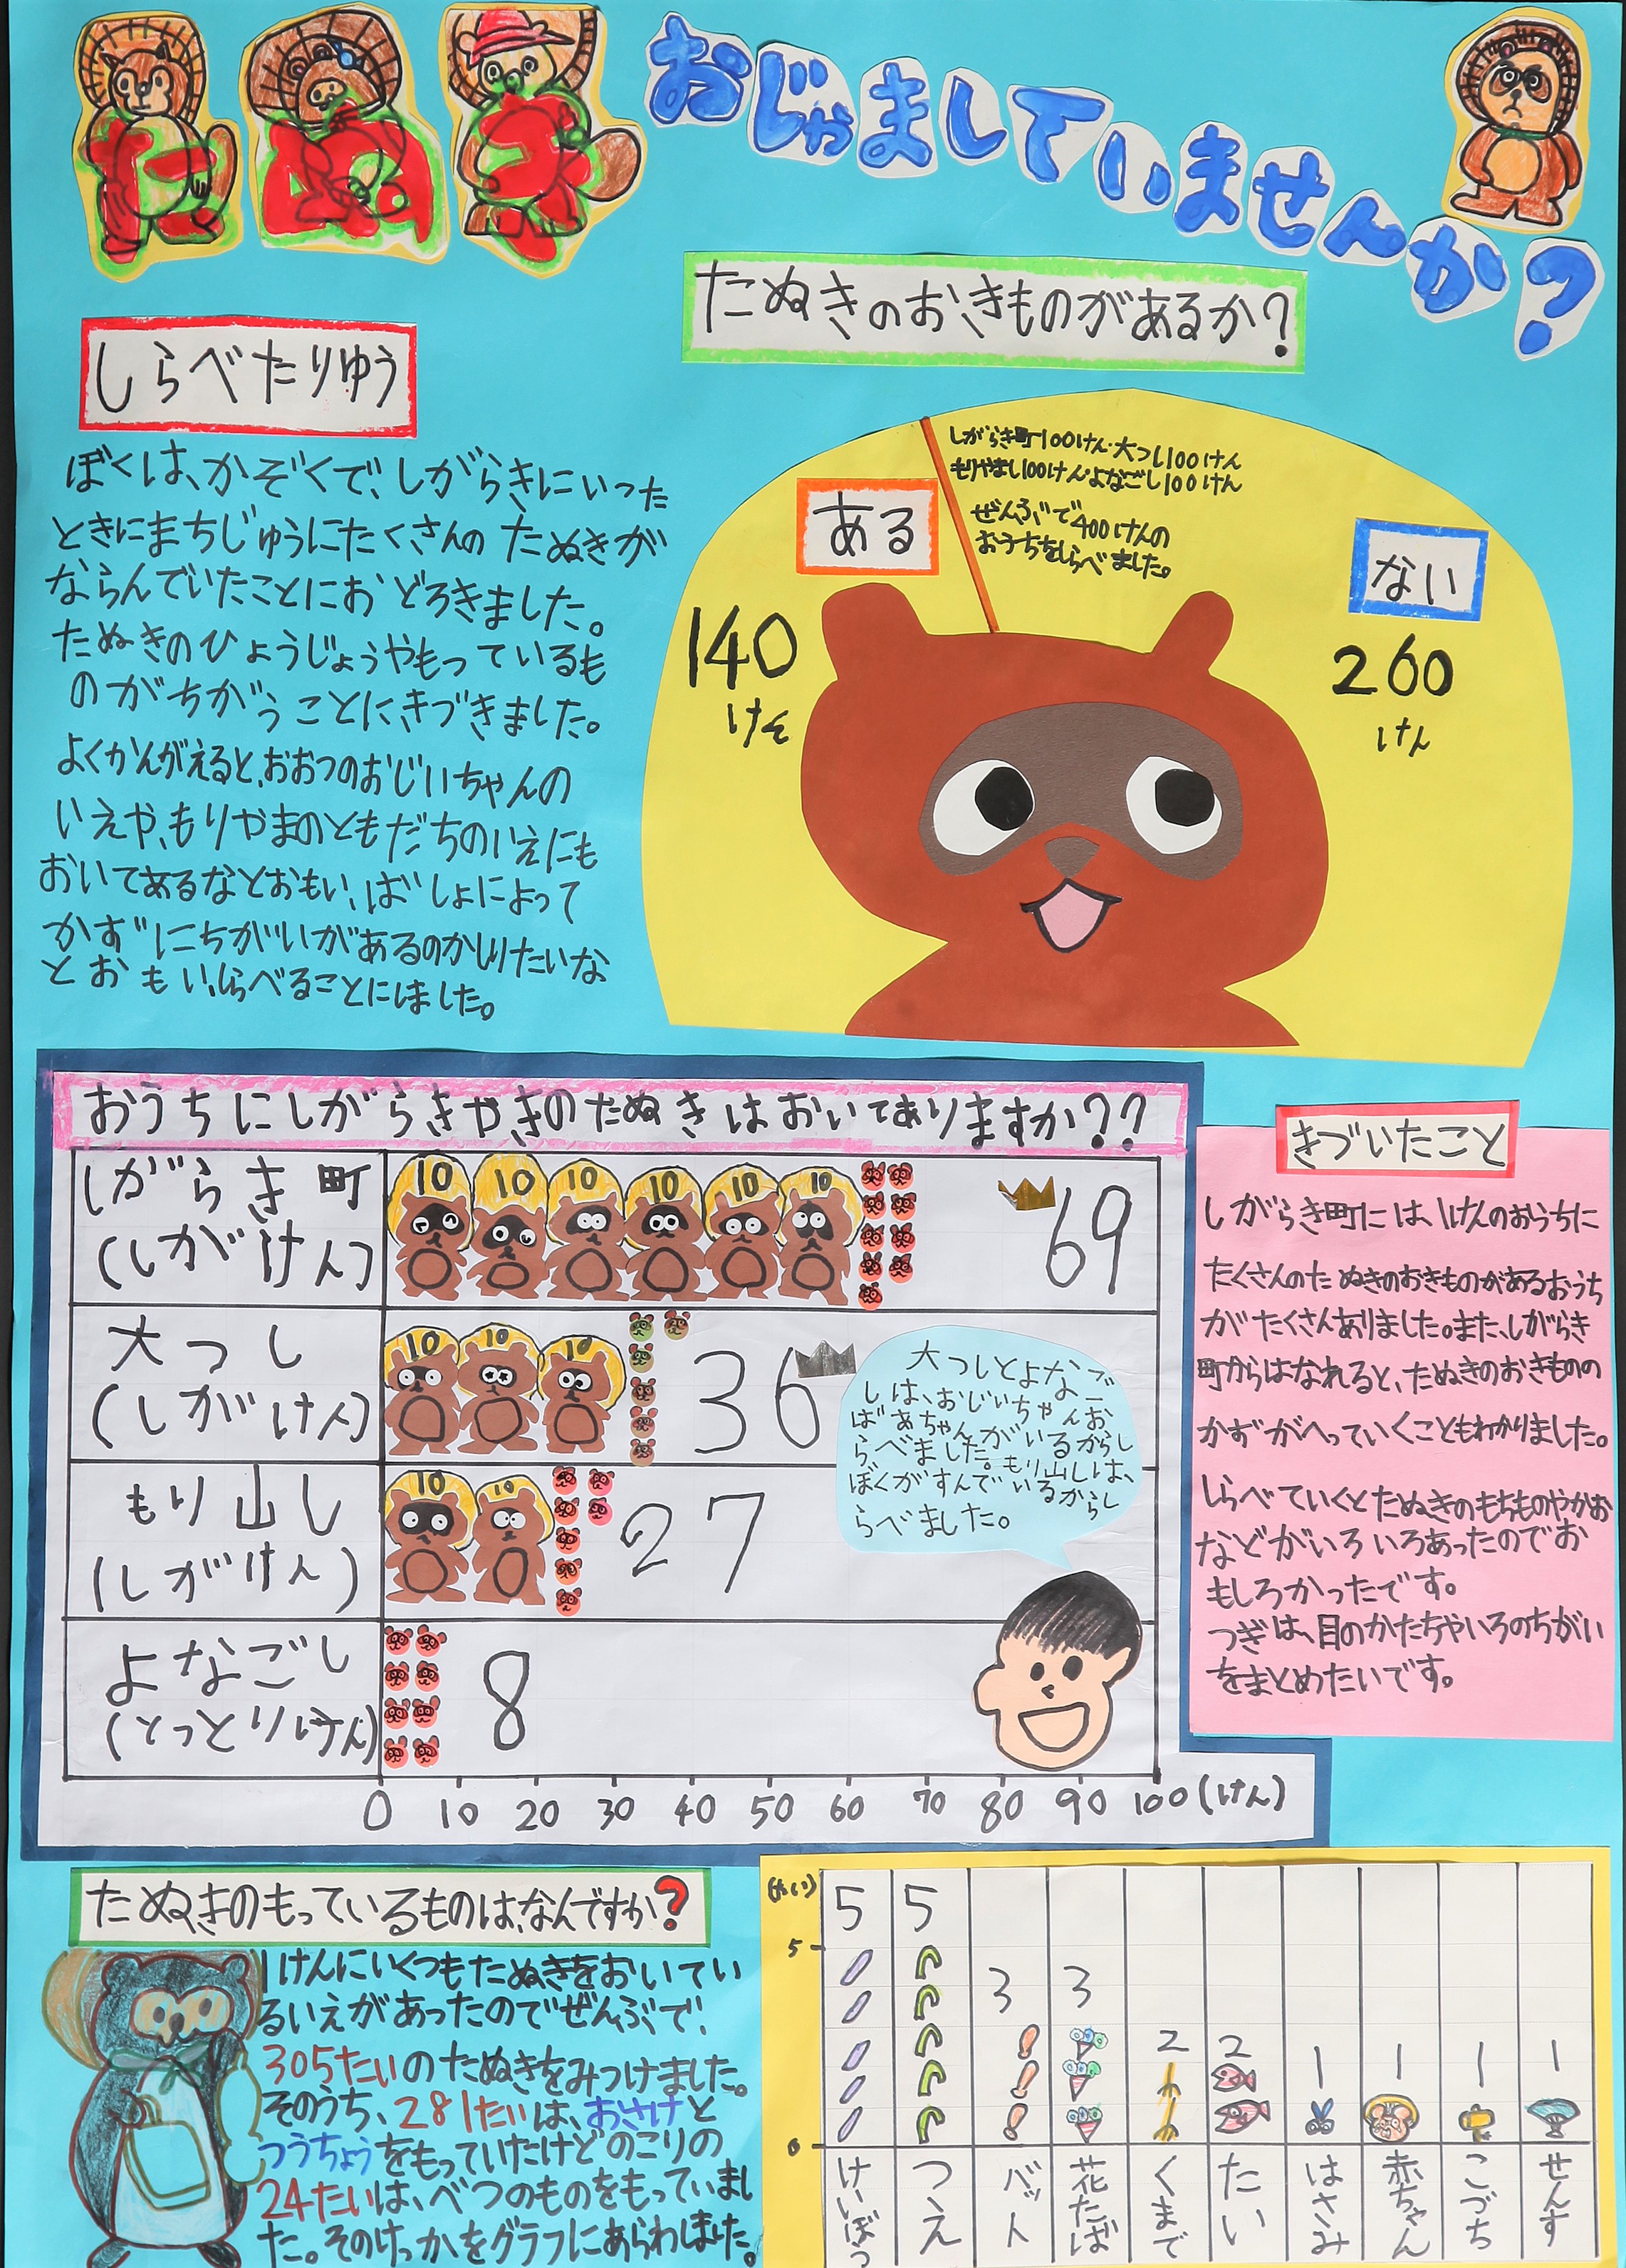 たぬき
おじゃましていませんか?
たぬきのおきものがあるか?
しらべたりゆう
ぼくは、かぞくで、しがらきにいった
ときにまちじゅうにたくさんの たぬきが
ならんでいたことにおどろきました。
たぬきのひょうじょうやもっているも
のがちがうことに、きづきました。
よくかんがえると、おおつのおじいちゃんの
いえや、もりやまのともだちのいえにも
おいてあるなとおもい、ばしょによって
かずにちがいがあるのかしりたいな
とおもい、しらべることにしました。
しがらき町100けん・大つし100けん
もりやまし100けん・よなごし100けん
ぜんぶで400けんの
おうちをしらべました。
ある
140
けん
ない
260
けん
おうちにしがらきやきのたぬきはおいてありますか??
しがらき町
(しがけん)
10 10 10 10 10 10
69
大つし
(しがけん)
10 10 10
36
もり山し
(しがけん)
10 10
27
よなごし
(とっとりけん)
8
0 10 20 30 40 50 60 70 80 90 100 (けん)
大つしとよなご
しは、おじいちゃんお
ばあちゃんがいるからし
らべました。もり山しは、
ぼくがすんでいるからし
らべました。
きづいたこと
しがらき町には、1けんのおうちに
たくさんのたぬきのおきものがあるおうち
がたくさんありました。また、しがらき
町からはなれると、たぬきのおきものの
かずがへっていくこともわかりました。
しらべていくとたぬきのもちものやかお
などがいろいろあったのでお
もしろかったです。
つぎは、目のかたちやいろのちがい
をまとめたいです。
たぬきのもっているものは、なんですか?
1けんにいくつもたぬきをおいてい
るいえがあったのでぜんぶで、
305たいのたぬきをみつけました。
そのうち、281たいは、おさけと
つうちょうをもっていたけどのこりの
24たいは、べつのものをもっていまし
た。そのけっかをグラフにあらわしました。
(たい)
5
0
5 5 3 3 2 2 1 1 1 1
けいぼう
つえ
バット
花たば
くまで
たい
はさみ
赤ちゃん
こづち
せんす